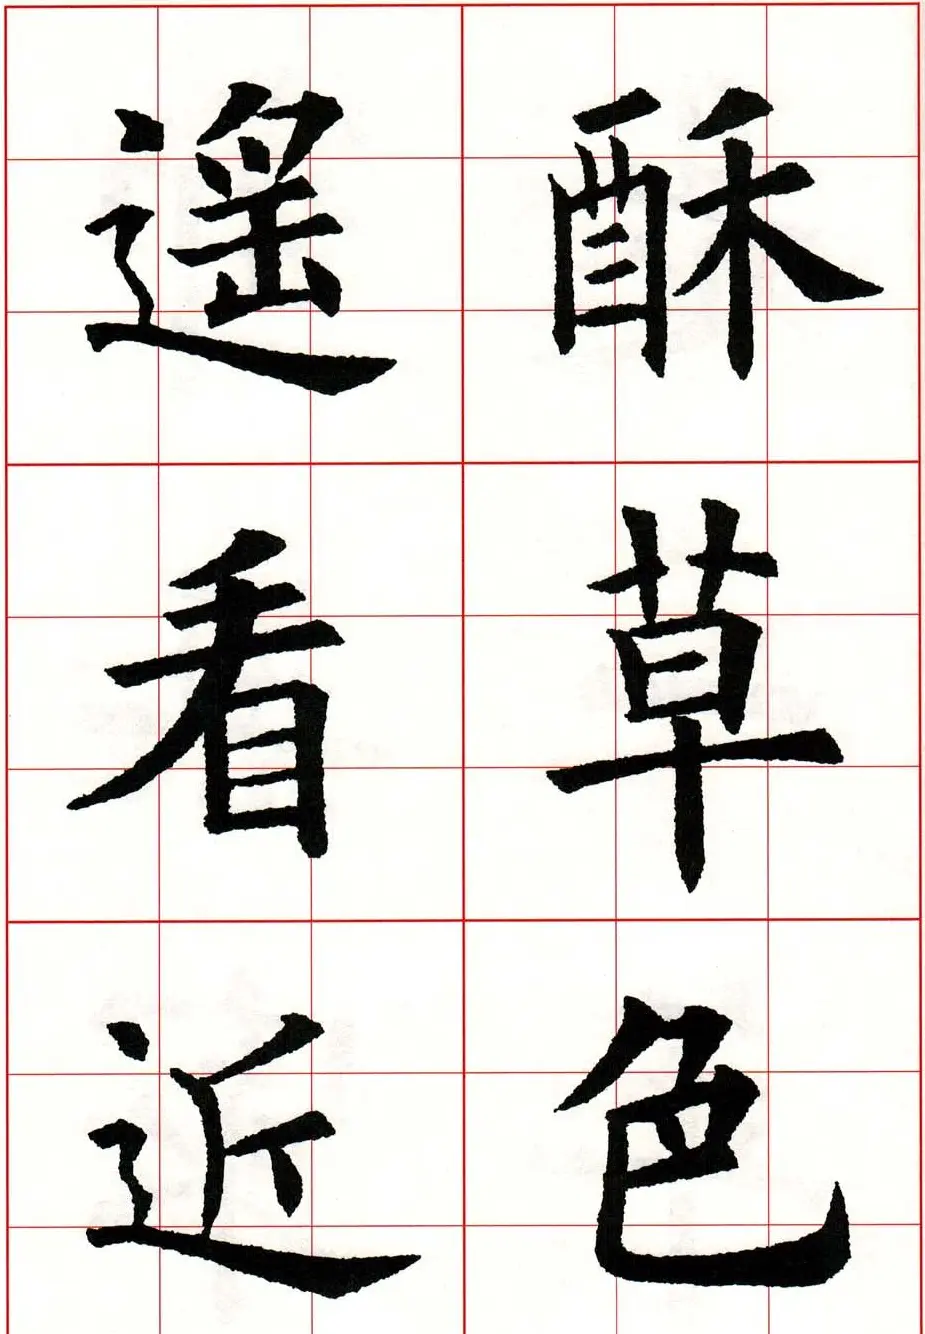 酥草色
遥看近